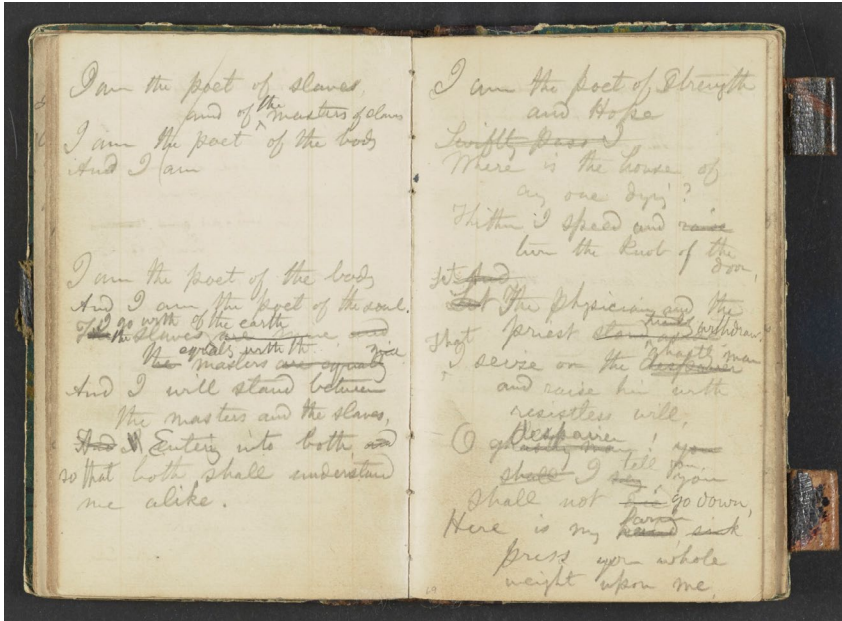 I am the poet of slaves,
and of the masters of slaves
I am the poet of the body
And I am
I am the poet of the body
And I am the poet of the soul.
I go with of the earth
The the slaves are mine and
equals with the
The masters are equally
And I will stand between
the masters and the slaves,
And Entering into both, and
so that both shall understand
me alike.
I am the poet of Strength
and Hope
Swiftly pass I
Where is the house of
any one dying?
Thither I speed and raise
turn the knob of the
door,
let And
Let The physician and the
priest stand withdraw,
That ghastly man
I seize on the despairer
and raise him with
resistless will;
Despairer
O ghastly man! you
tell you,
shall I say, you
shall not die go down,
Here is my hand sink
press your whole
weight upon me,
69